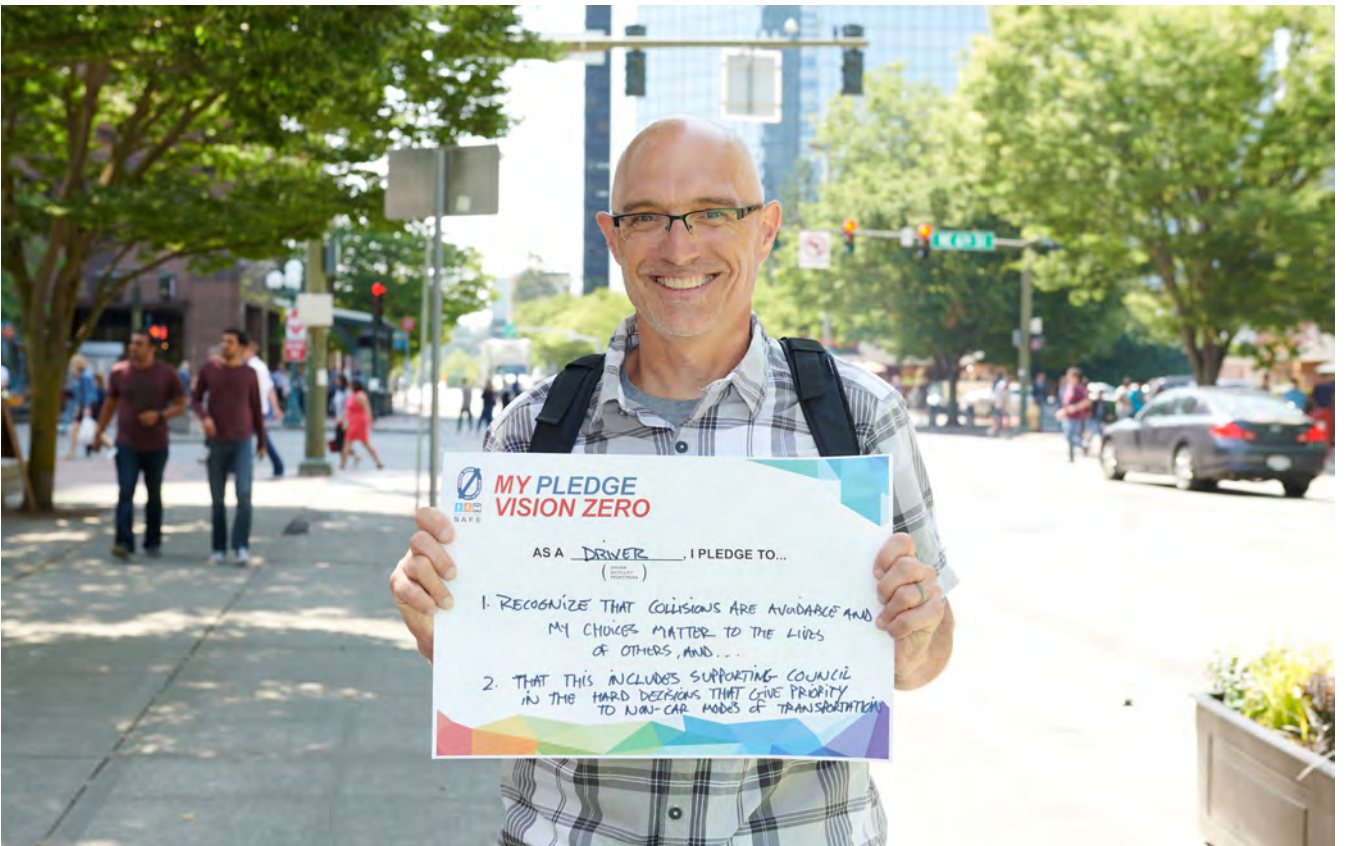 NE 4TH ST
MY PLEDGE
VISION ZERO
SAFE
AS A DRIVER, I PLEDGE TO...
(DRIVER
BICYCLIST
PEDESTRIAN)
1. RECOGNIZE THAT COLLISIONS ARE AVOIDABLE AND
MY CHOICES MATTER TO THE LIVES
OF OTHERS, AND...
2. THAT THIS INCLUDES SUPPORTING COUNCIL
IN THE HARD DECISIONS THAT GIVE PRIORITY
TO NON-CAR MODES OF TRANSPORTATION